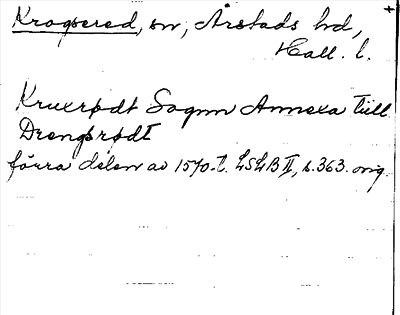 Krogsered, sn, Årstads hd,
Hall. l.
Kruxrødt Sognn Annexa till
Drengsrødt
förra delen av 1570-t. LSLB II, s. 363. orig.